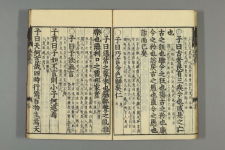 子曰古者民有三疾今也或是之亡
也
古之狂也肆今之狂也蕩古之矜也廉
今之矜也忿戾古之愚也直今之愚也
詐而已矣
子曰巧言令色鮮矣仁
子曰惡紫之奪朱也惡鄭聲之亂雅
樂也惡利口之覆邦家者
子曰予欲無言
子貢曰子如不言則小子何述焉
子曰天何言哉四時行焉百物生焉天